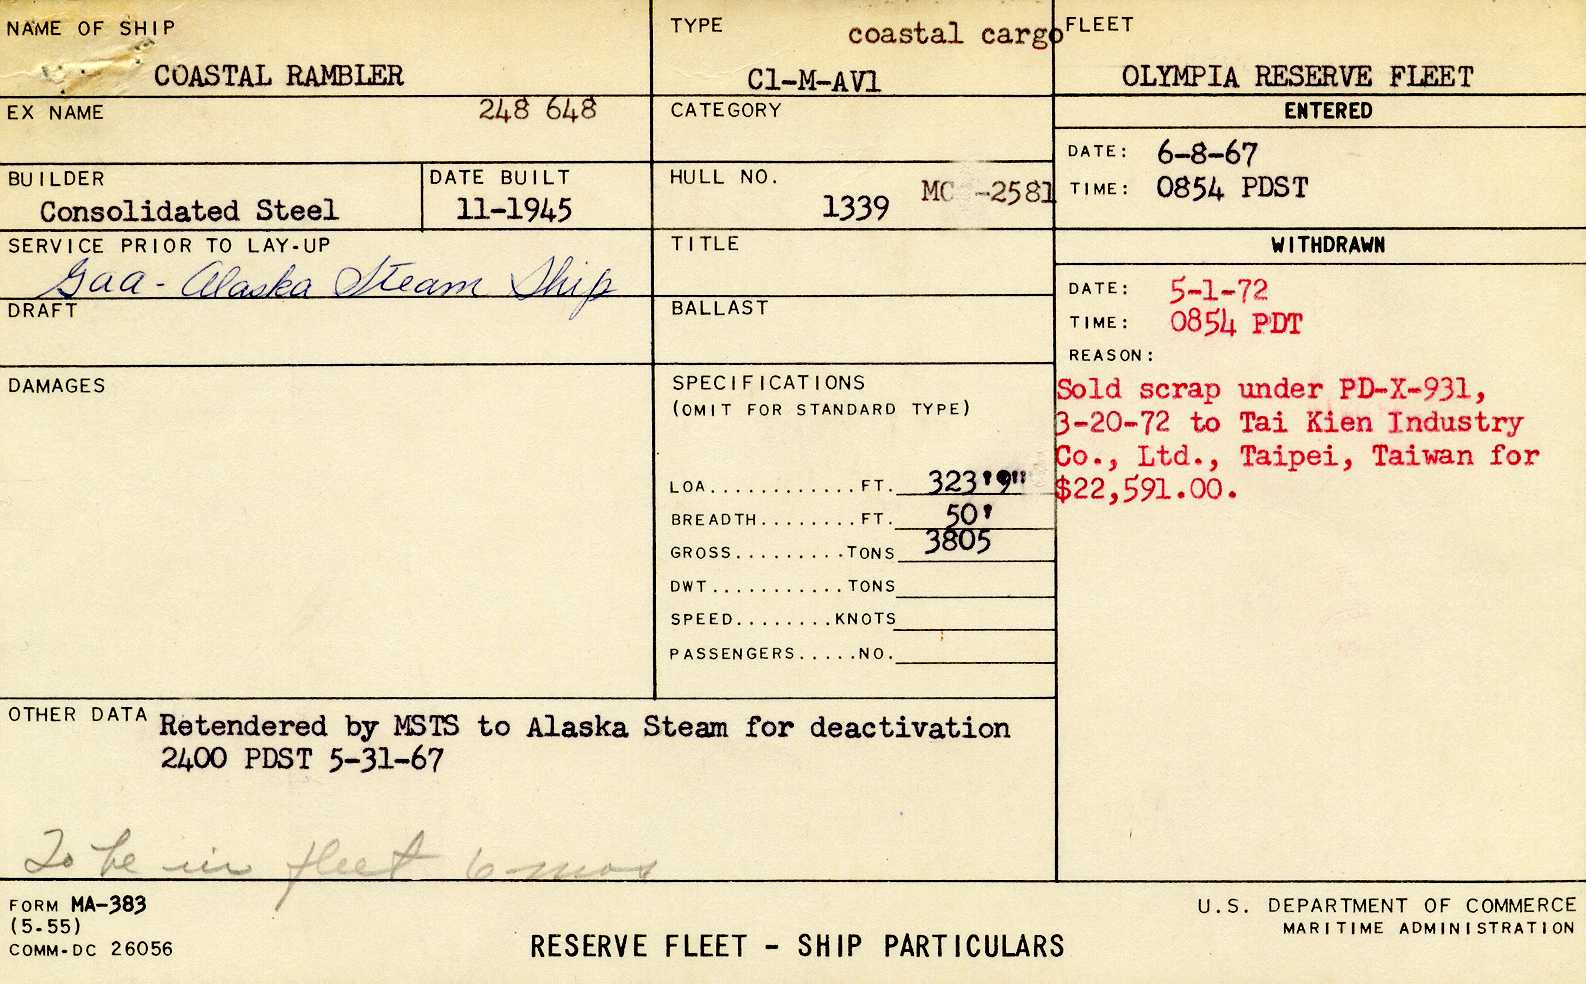 NAME OF SHIP
COASTAL RAMBLER
TYPE
coastal cargo
C1-M-AV1
FLEET
OLYMPIA RESERVE FLEET
EX NAME
248 648
CATEGORY
ENTERED
DATE: 6-8-67
TIME: 0854 PDST
BUILDER
Consolidated Steel
DATE BUILT
11-1945
HULL NO.
1339 MC -2581
SERVICE PRIOR TO LAY-UP
Gaa - Alaska Steam Ship
TITLE
WITHDRAWN
DATE: 5-1-72
TIME: 0854 PDT
REASON:
Sold scrap under PD-X-931,
3-20-72 to Tai Kien Industry
Co., Ltd., Taipei, Taiwan for
$22,591.00.
DRAFT
BALLAST
DAMAGES
SPECIFICATIONS
(OMIT FOR STANDARD TYPE)
LOA............FT. 323'9"
BREADTH........FT. 50'
GROSS.........TONS 3805
DWT...........TONS
SPEED........KNOTS
PASSENGERS.....NO.
OTHER DATA Retendered by MSTS to Alaska Steam for deactivation
2400 PDST 5-31-67
To be in fleet 6 mos
FORM MA-383
(5-55)
COMM-DC 26056
RESERVE FLEET - SHIP PARTICULARS
U.S. DEPARTMENT OF COMMERCE
MARITIME ADMINISTRATION